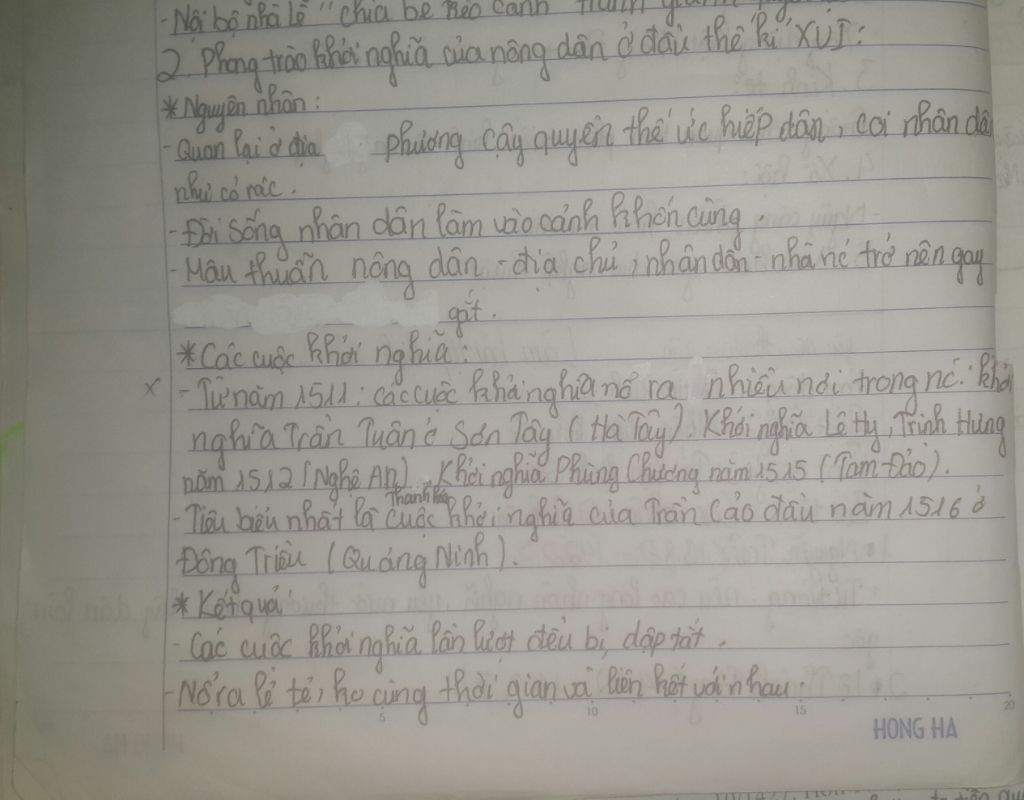 -Nội bộ nhà Lê "chia bè kéo cánh" tranh giành
2. Phong trào khởi nghĩa của nông dân ở đầu thế kỉ XVI:
*Nguyên nhân:
-Quan lại ở địa phương cậy quyền thế ức hiếp dân, coi nhân dâ
như cỏ rác.
-Đời sống nhân dân lâm vào cảnh khốn cùng.
-Mâu thuẫn nông dân - địa chủ, nhân dân - nhà nc trở nên gay
gắt.
*Các cuộc khởi nghĩa:
x -Từ năm 1511: các cuộc khởi nghĩa nổ ra nhiều nơi trong nc: khởi
nghĩa Trần Tuân ở Sơn Tây (Hà Tây). Khởi nghĩa Lê Hy, Trịnh Hưng
năm 1512 (Nghệ An), Khởi nghĩa Phùng Chương năm 1515 (Tam-Đảo).
Thanh Hóa
-Tiêu biểu nhất là cuộc khởi nghĩa của Trần Cảo đầu năm 1516 ở
Đông Triều (Quảng Ninh).
*Kết quả:
-Các cuộc khởi nghĩa lần lượt đều bị dập tắt.
-Nổ ra lẻ tẻ, ko cùng thời gian và liên kết với nhau.
5 10 15 20
HONG HA